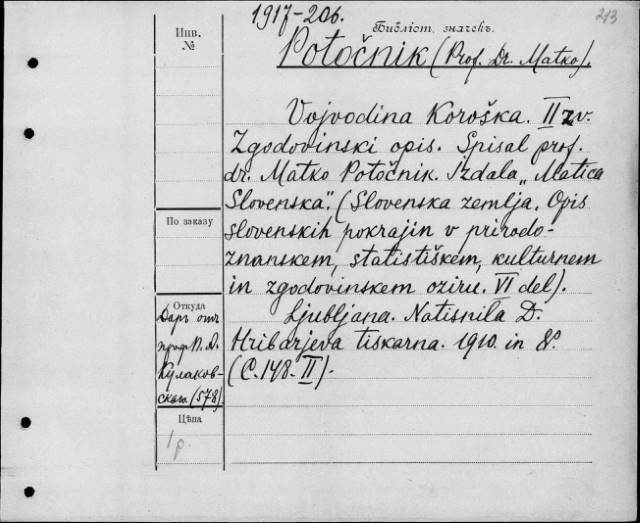 1917-206.
213
Инв.
№
Библіот. значекъ.
Potočnik (Prof. Dr. Matko).
Vojvodina Koroška. II zv.
Zgodovinski opis. Spisal prof.
dr. Matko Potočnik. Izdala „Matica
Slovenska“. (Slovenska zemlja. Opis
slovenskih pokrajin v prirodo-
znanskem, statistiškem, kulturnem
in zgodovinskem oziru. VI del).
Ljubljana. Natisnila D.
Hribarjeva tiskarna. 1910. in 8º.
(C. 148. II).
По заказу
Откуда
Даръ отъ
проф. П. А.
Кулаков-
скаго (578).
Цѣна
1 р.